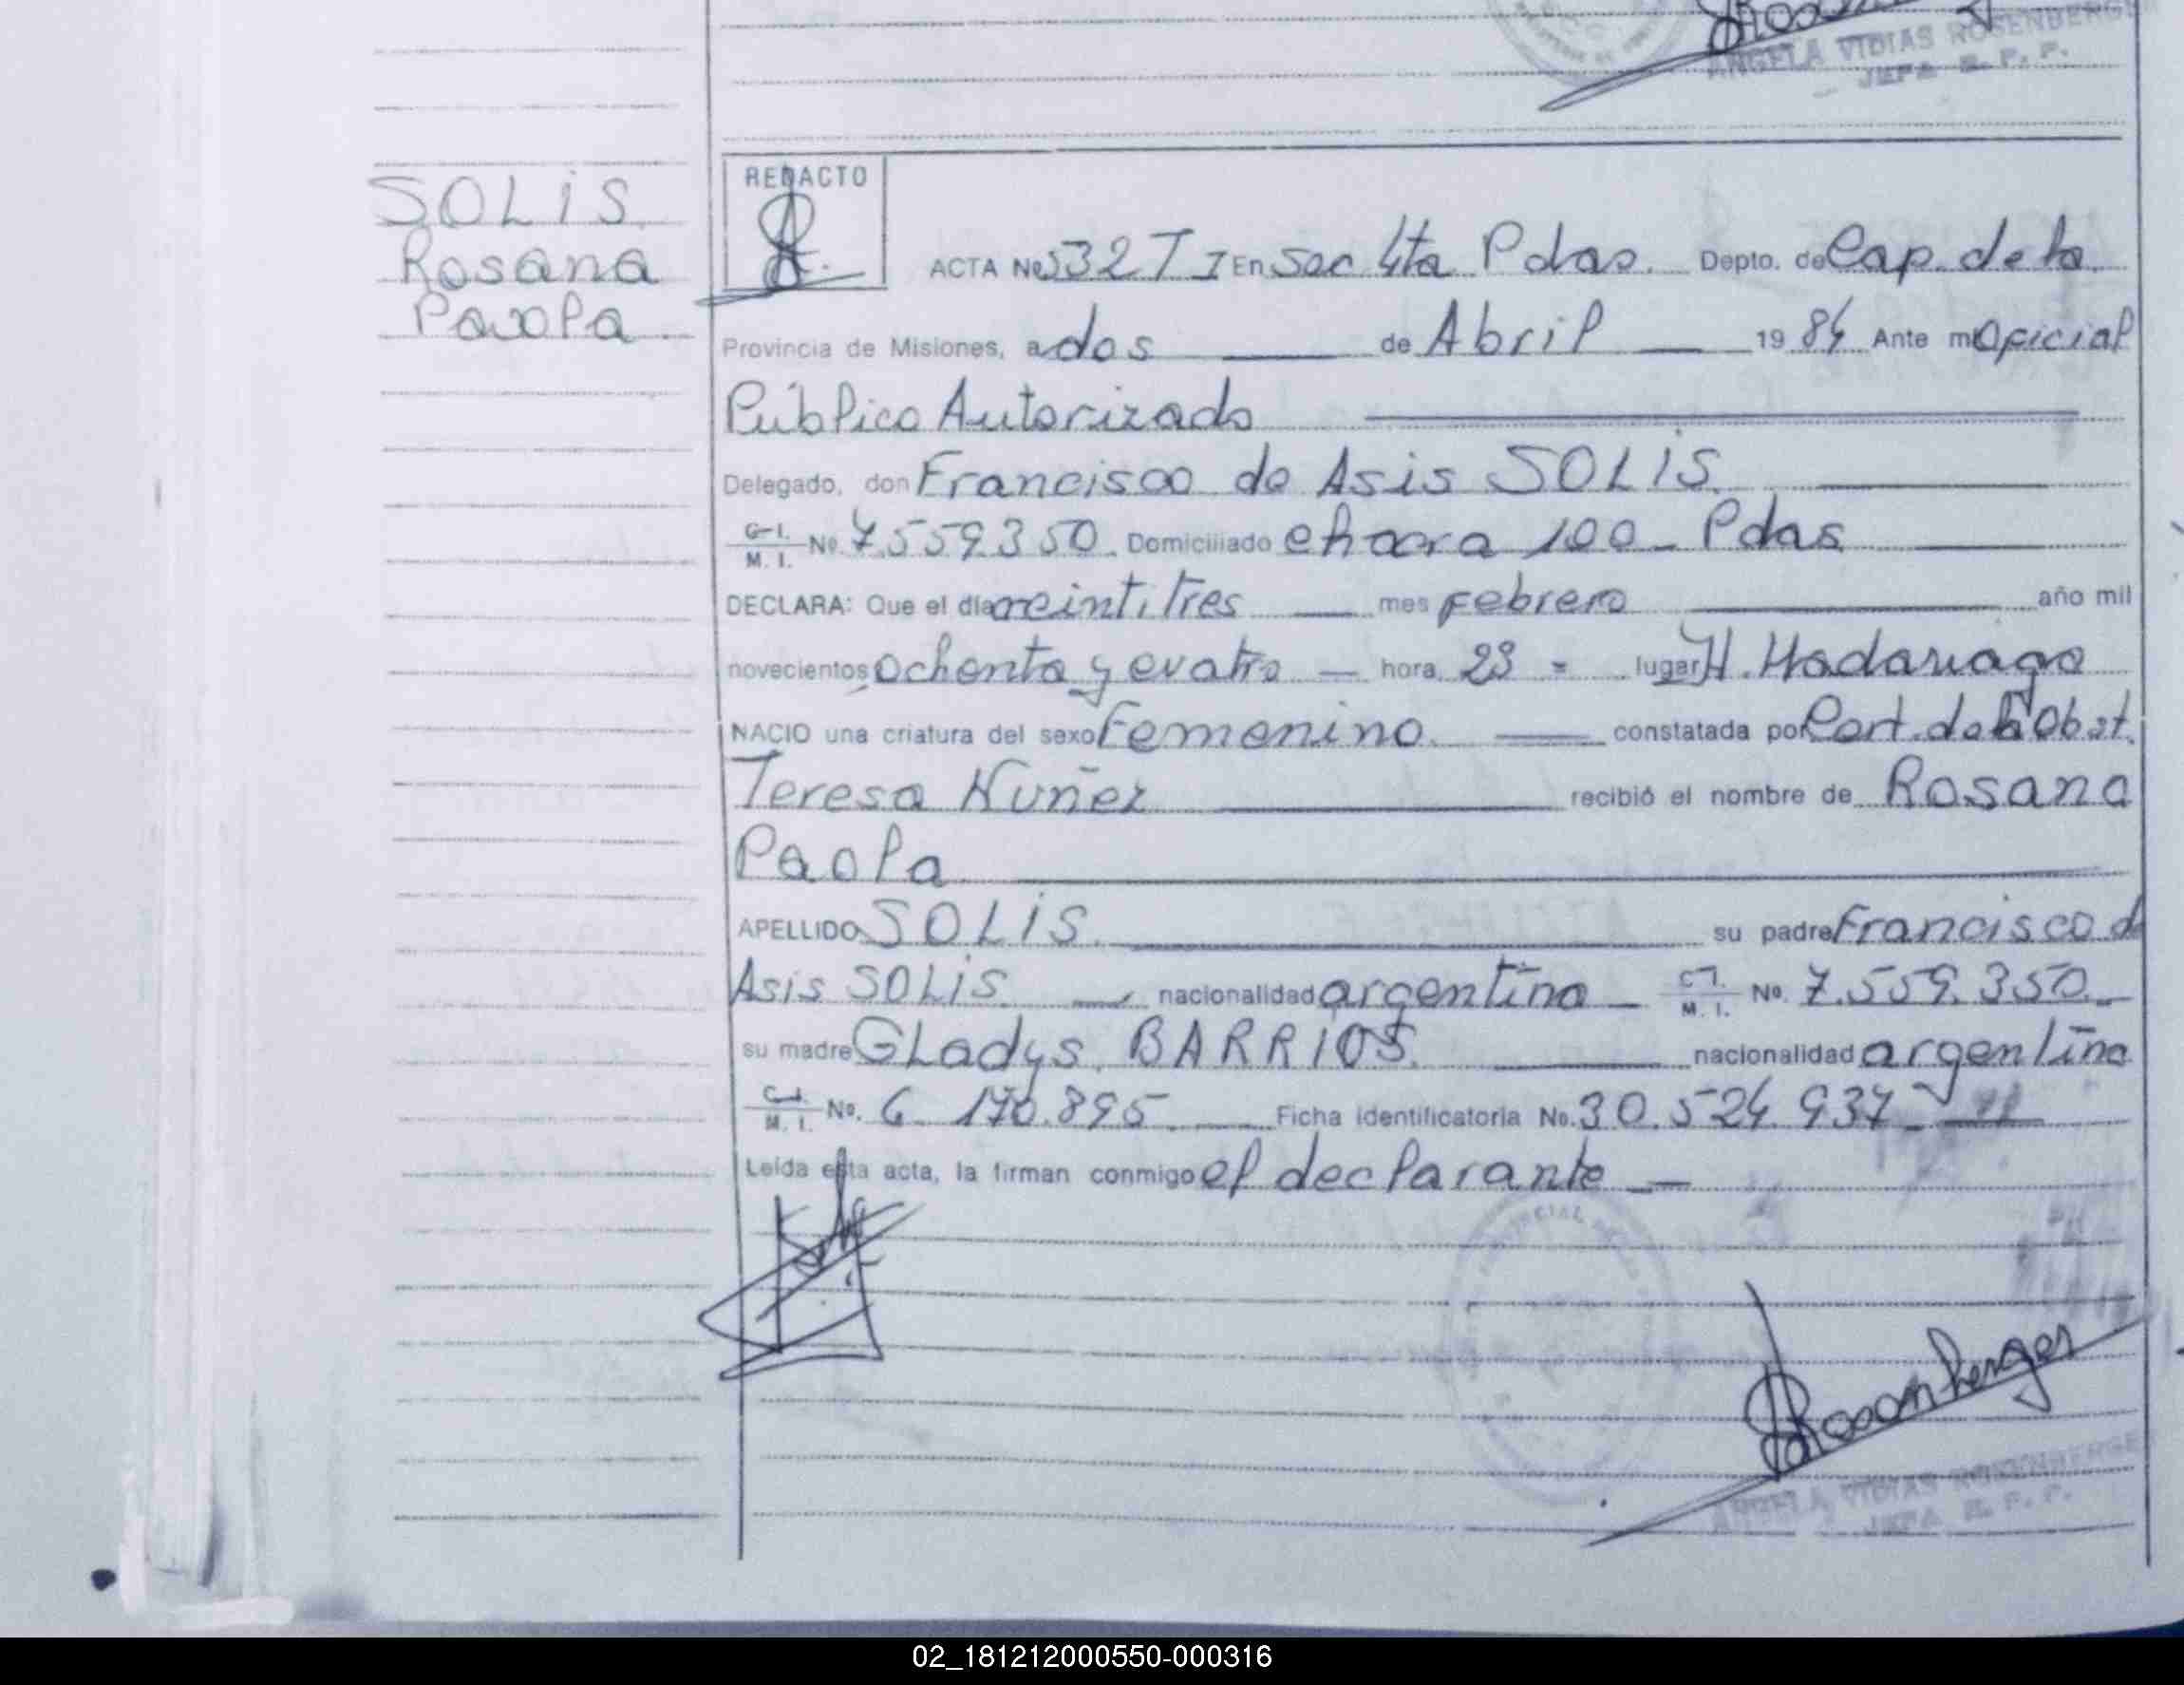 ANGELA VIDIAS ROSENBERGER
JEFA R. P. P.
SOLIS
Rosana
Paola
REDACTO
ACTA Nº 532 T I En Sec 4ta Pdas. Depto. de Cap. de la
Provincia de Misiones, a dos de Abril 1984 Ante mi Oficial
Público Autorizado
Delegado, don Francisco de Asis SOLIS.
C. I. M. I. Nº. 7.559.350. Domiciliado chacra 100 - Pdas
DECLARA: Que el día veintitres mes Febrero año mil
novecientos ochenta y cuatro hora 23 = lugar H. Madariaga
NACIO una criatura del sexo Femenino. constatada por Cert. de la Obst.
Teresa Nuñez recibió el nombre de Rosana
Paola
APELLIDO SOLIS. su padre Francisco de
Asis SOLIS nacionalidad argentina C. I. M. I. Nº. 7.559.350.
su madre GLadys. BARRIOS. nacionalidad argentina
C. I. M. I. Nº. 6.170.895. Ficha identificatoria Nº. 30.524.937
Leída esta acta, la firman conmigo el declarante
Rosenberger
ANGELA VIDIAS ROSENBERGER
JEFA R. P. P.
02_181212000550-000316